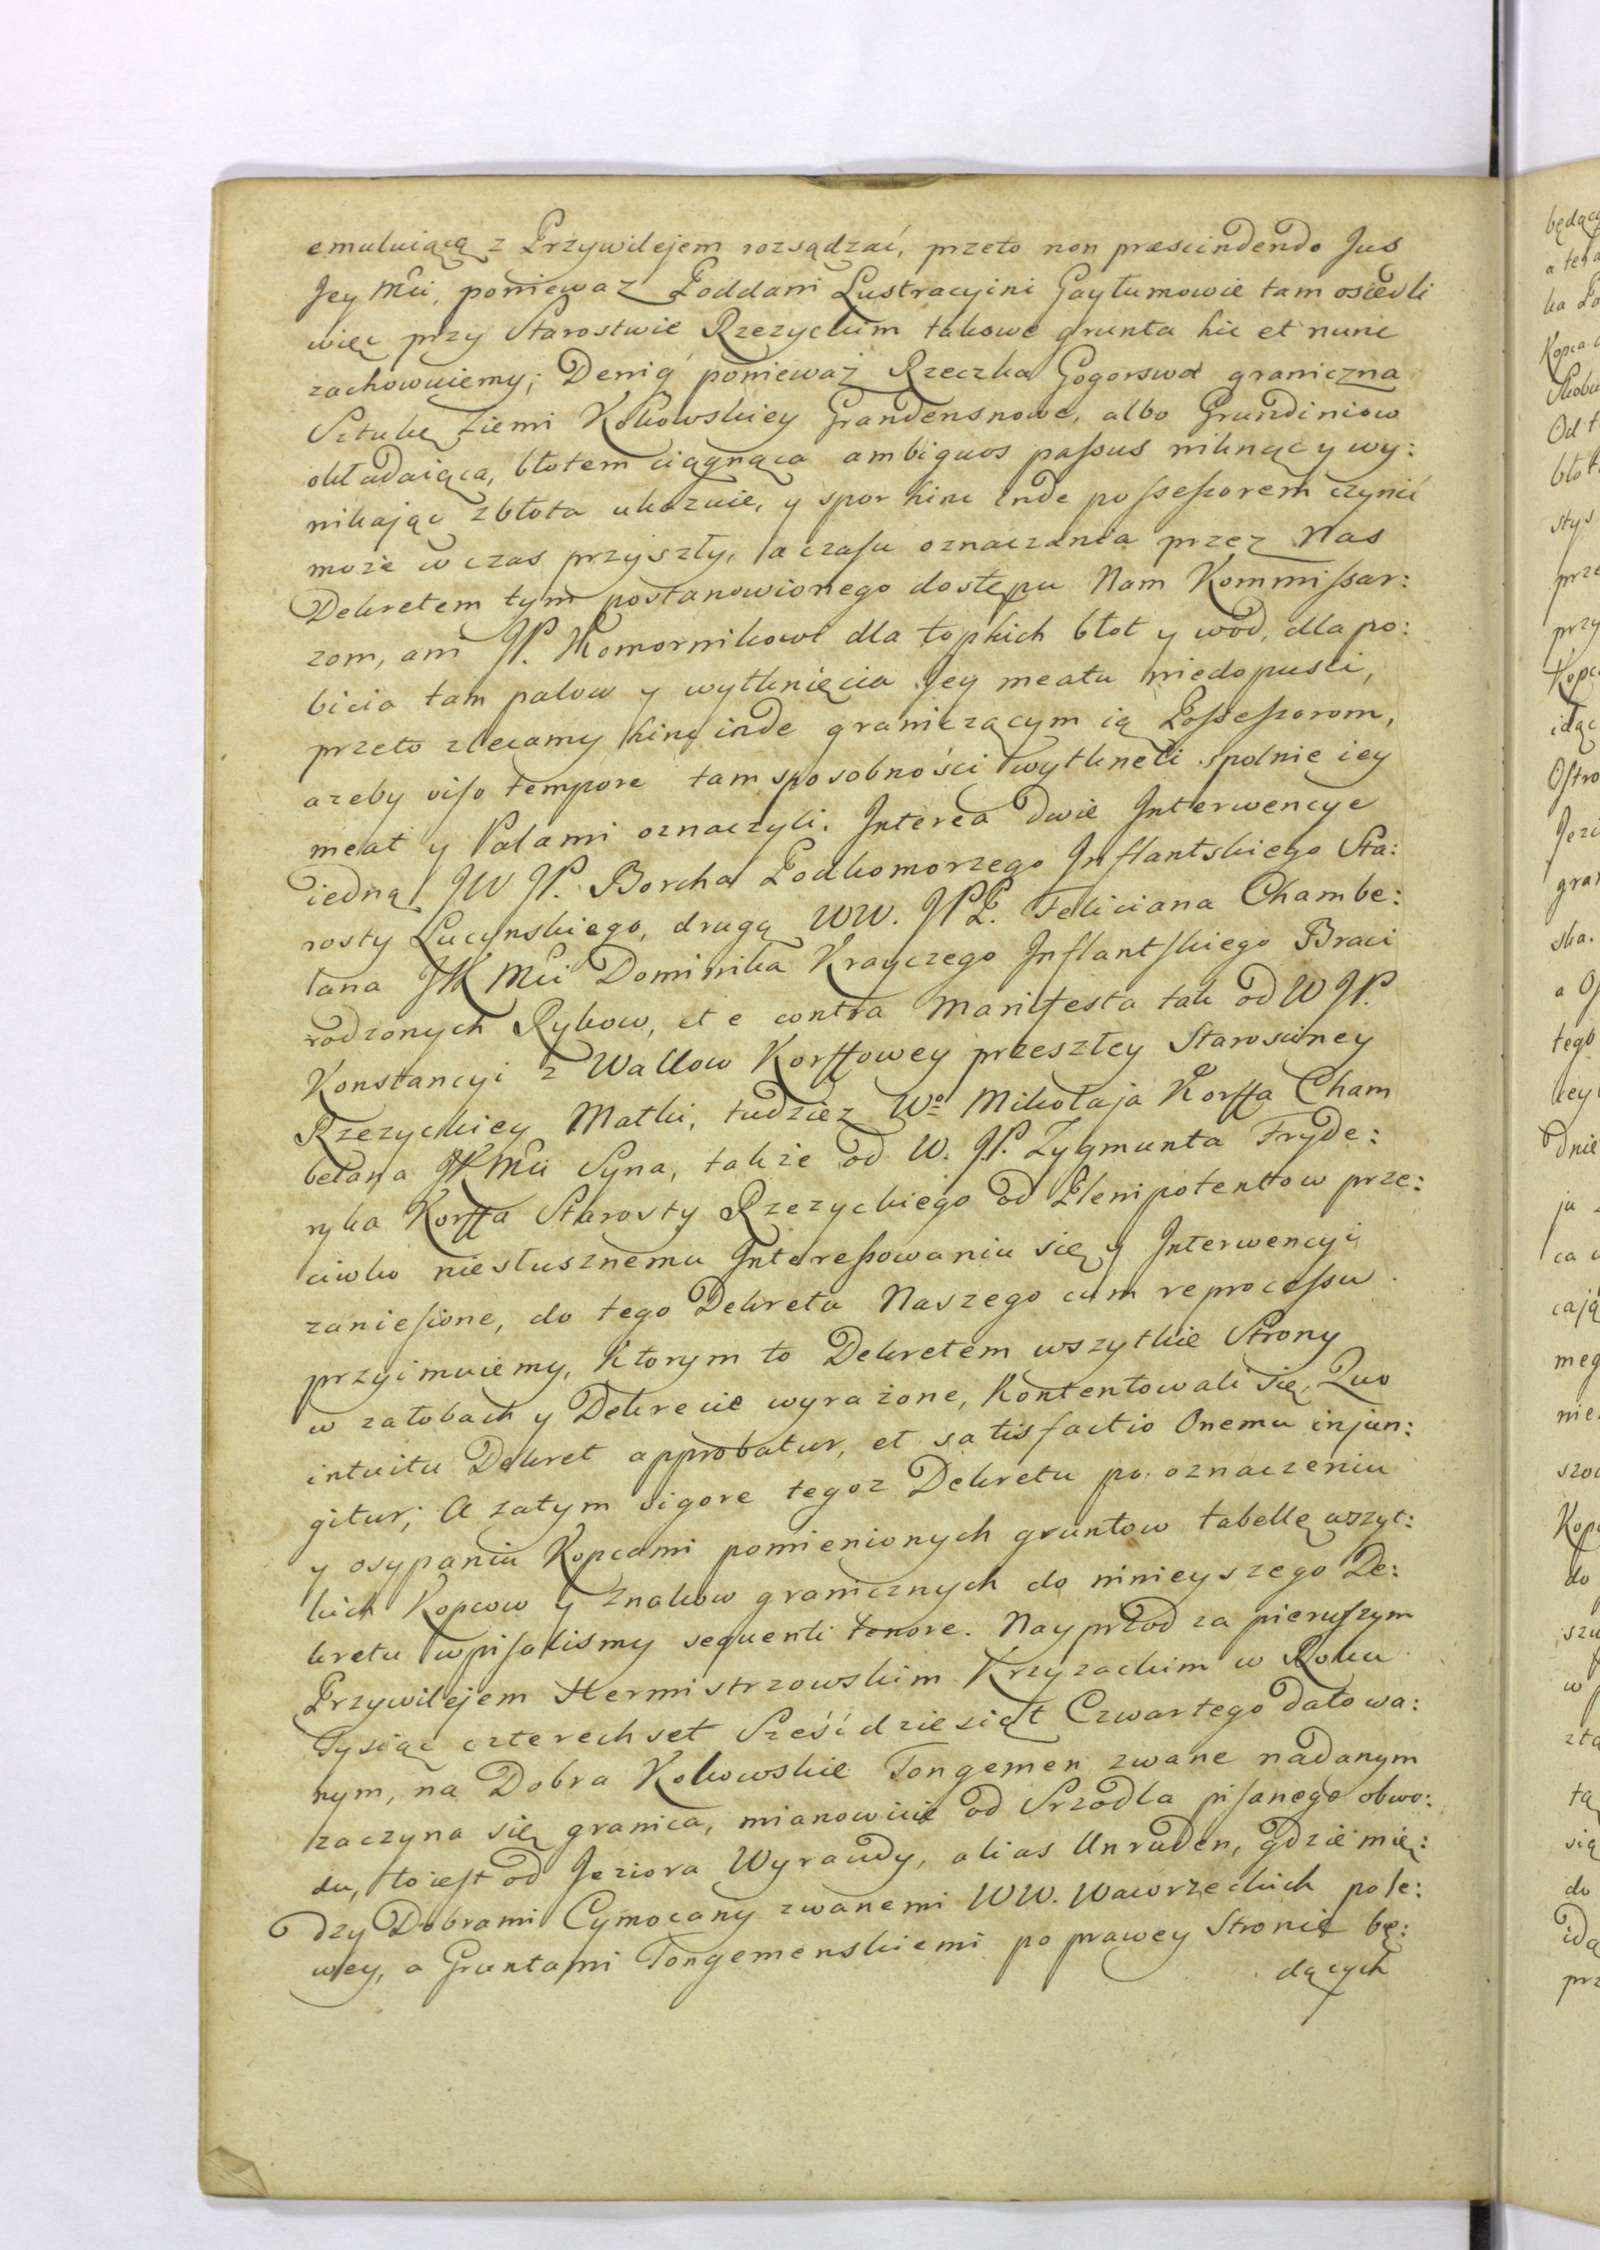 emuluiącą z Przywilejem rozsądzać, przeto non præscindendo Jus
Jey Mći, poniewaz Poddani Lustracyini Gaytumowie tam osiedli
więc przy Starostwie Rzezyckim takowe grunta hic et nunc
zachowuiemy; Deniq́ ponieważ Rzeczka Gogorswa graniczna
Sztukę Ziemi Kokowskiey Grandensnowe, albo Grundiniow
okładaiąca, błotem ciągnąca ambiguos passus niknąc y wy:
nikając z błota ukazuie, y spor hinc inde possessorem czynić
może w czas przyszły, a czasu oznaczania przez Nas
Dekretem tym postanowionego dostępu Nam Kommissar:
zom, ani JP. Komornikowi dla topkich błot y wod, dla po:
bicia tam palow y wytknięcia Jey meatu niedopusci,
przeto zlecamy hinc inde graniczącym ią Possessorom,
azeby viso tempore tam sposobności wytkneli spolnie iey
meat y Palami oznaczyli. Interea dwie Interwencye
iedną JW JP. Borcha Podkomorzego Inflantskiego Sta:
rosty Lucynskiego, drugą WW. JPP. Feliciana Chambe:
lana JK Mći Dominika Krayczego Inflantskiego Braci
rodzonych Rykow, et e contra Manifesta tak od W JP.
Konstancyi z Wallow Korffowey przeszłey Starosciney
Rzezyckiey Matki, tudziez Wo Mikołaja Korffa Cham
belana JK Mći Syna, także od W. JP. Zygmunta Fryde:
ryka Korffa Starosty Rzezyckiego od Plenipotentow prze:
ciwko niesłusznemu Interessowaniu się y Interwencyi
zaniesione, do tego Dekretu Naszego cum reprocessu
przyimuiemy, ktorym to Dekretem wszytkie Strony
w załobach y Dekrecie wyrażone, kontentowali się, Quo
intuitu Dekret approbatur, et satisfactio Onemu injun:
gitur; A zatym vigore tegoz Dekretu po oznaczeniu
y osypaniu Kopcami pomienionych gruntow tabellę wszyt:
kich Kopcow y Znakow granicznych do ninieyszego De:
kretu wpisalismy sequenti tenore. Nayprzod za pierwszym
Przywilejem Hermistrzowskim Krzyzackim w Roku
Tysiąc czterechset Sześćdziesiąt Czwartego datowa:
nym, na Dobra Kokowskie Tongemen zwane nadanym
zaczyna się granica, mianowicie od Srzodla pisanego obwo:
du, to iest od Jeziora Wyraudy, alias Unruden, gdzie mię:
dzy Dobrami Cymocany zwanemi WW. Wawrzeckich po le:
wey, a Gruntami Tongemenskiemi po prawey Stronie bę:
dących